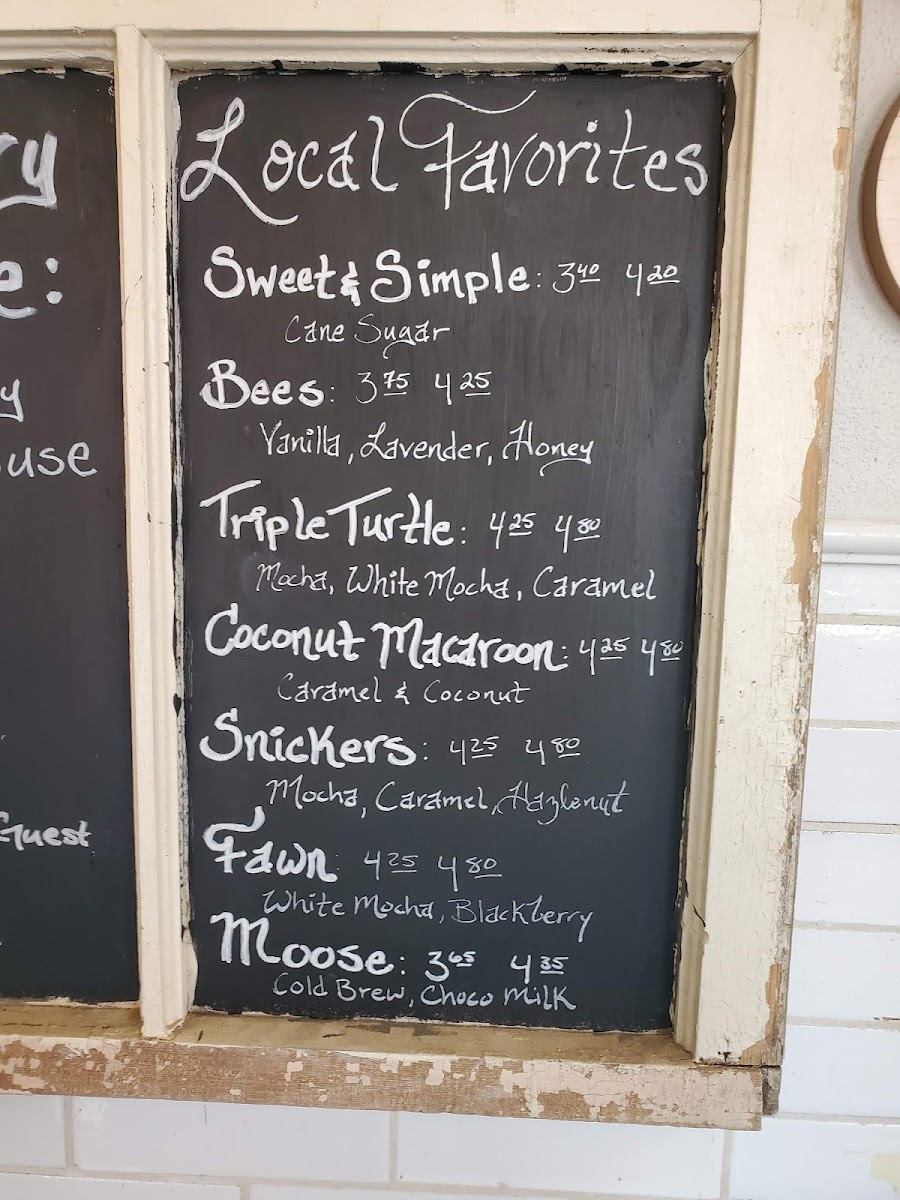 Local Favorites
Sweet & Simple: 3 40 4 20
Cane Sugar
Bees: 3 75 4 25
Vanilla, Lavender, Honey
Triple Turtle: 4 25 4 80
Mocha, White Mocha, Caramel
Coconut Macaroon: 4 25 4 80
Caramel & Coconut
Snickers: 4 25 4 80
Mocha, Caramel, Hazlenut
Fawn: 4 25 4 80
White Mocha, Blackberry
Moose: 3 65 4 35
Cold Brew, Choco Milk
Guest